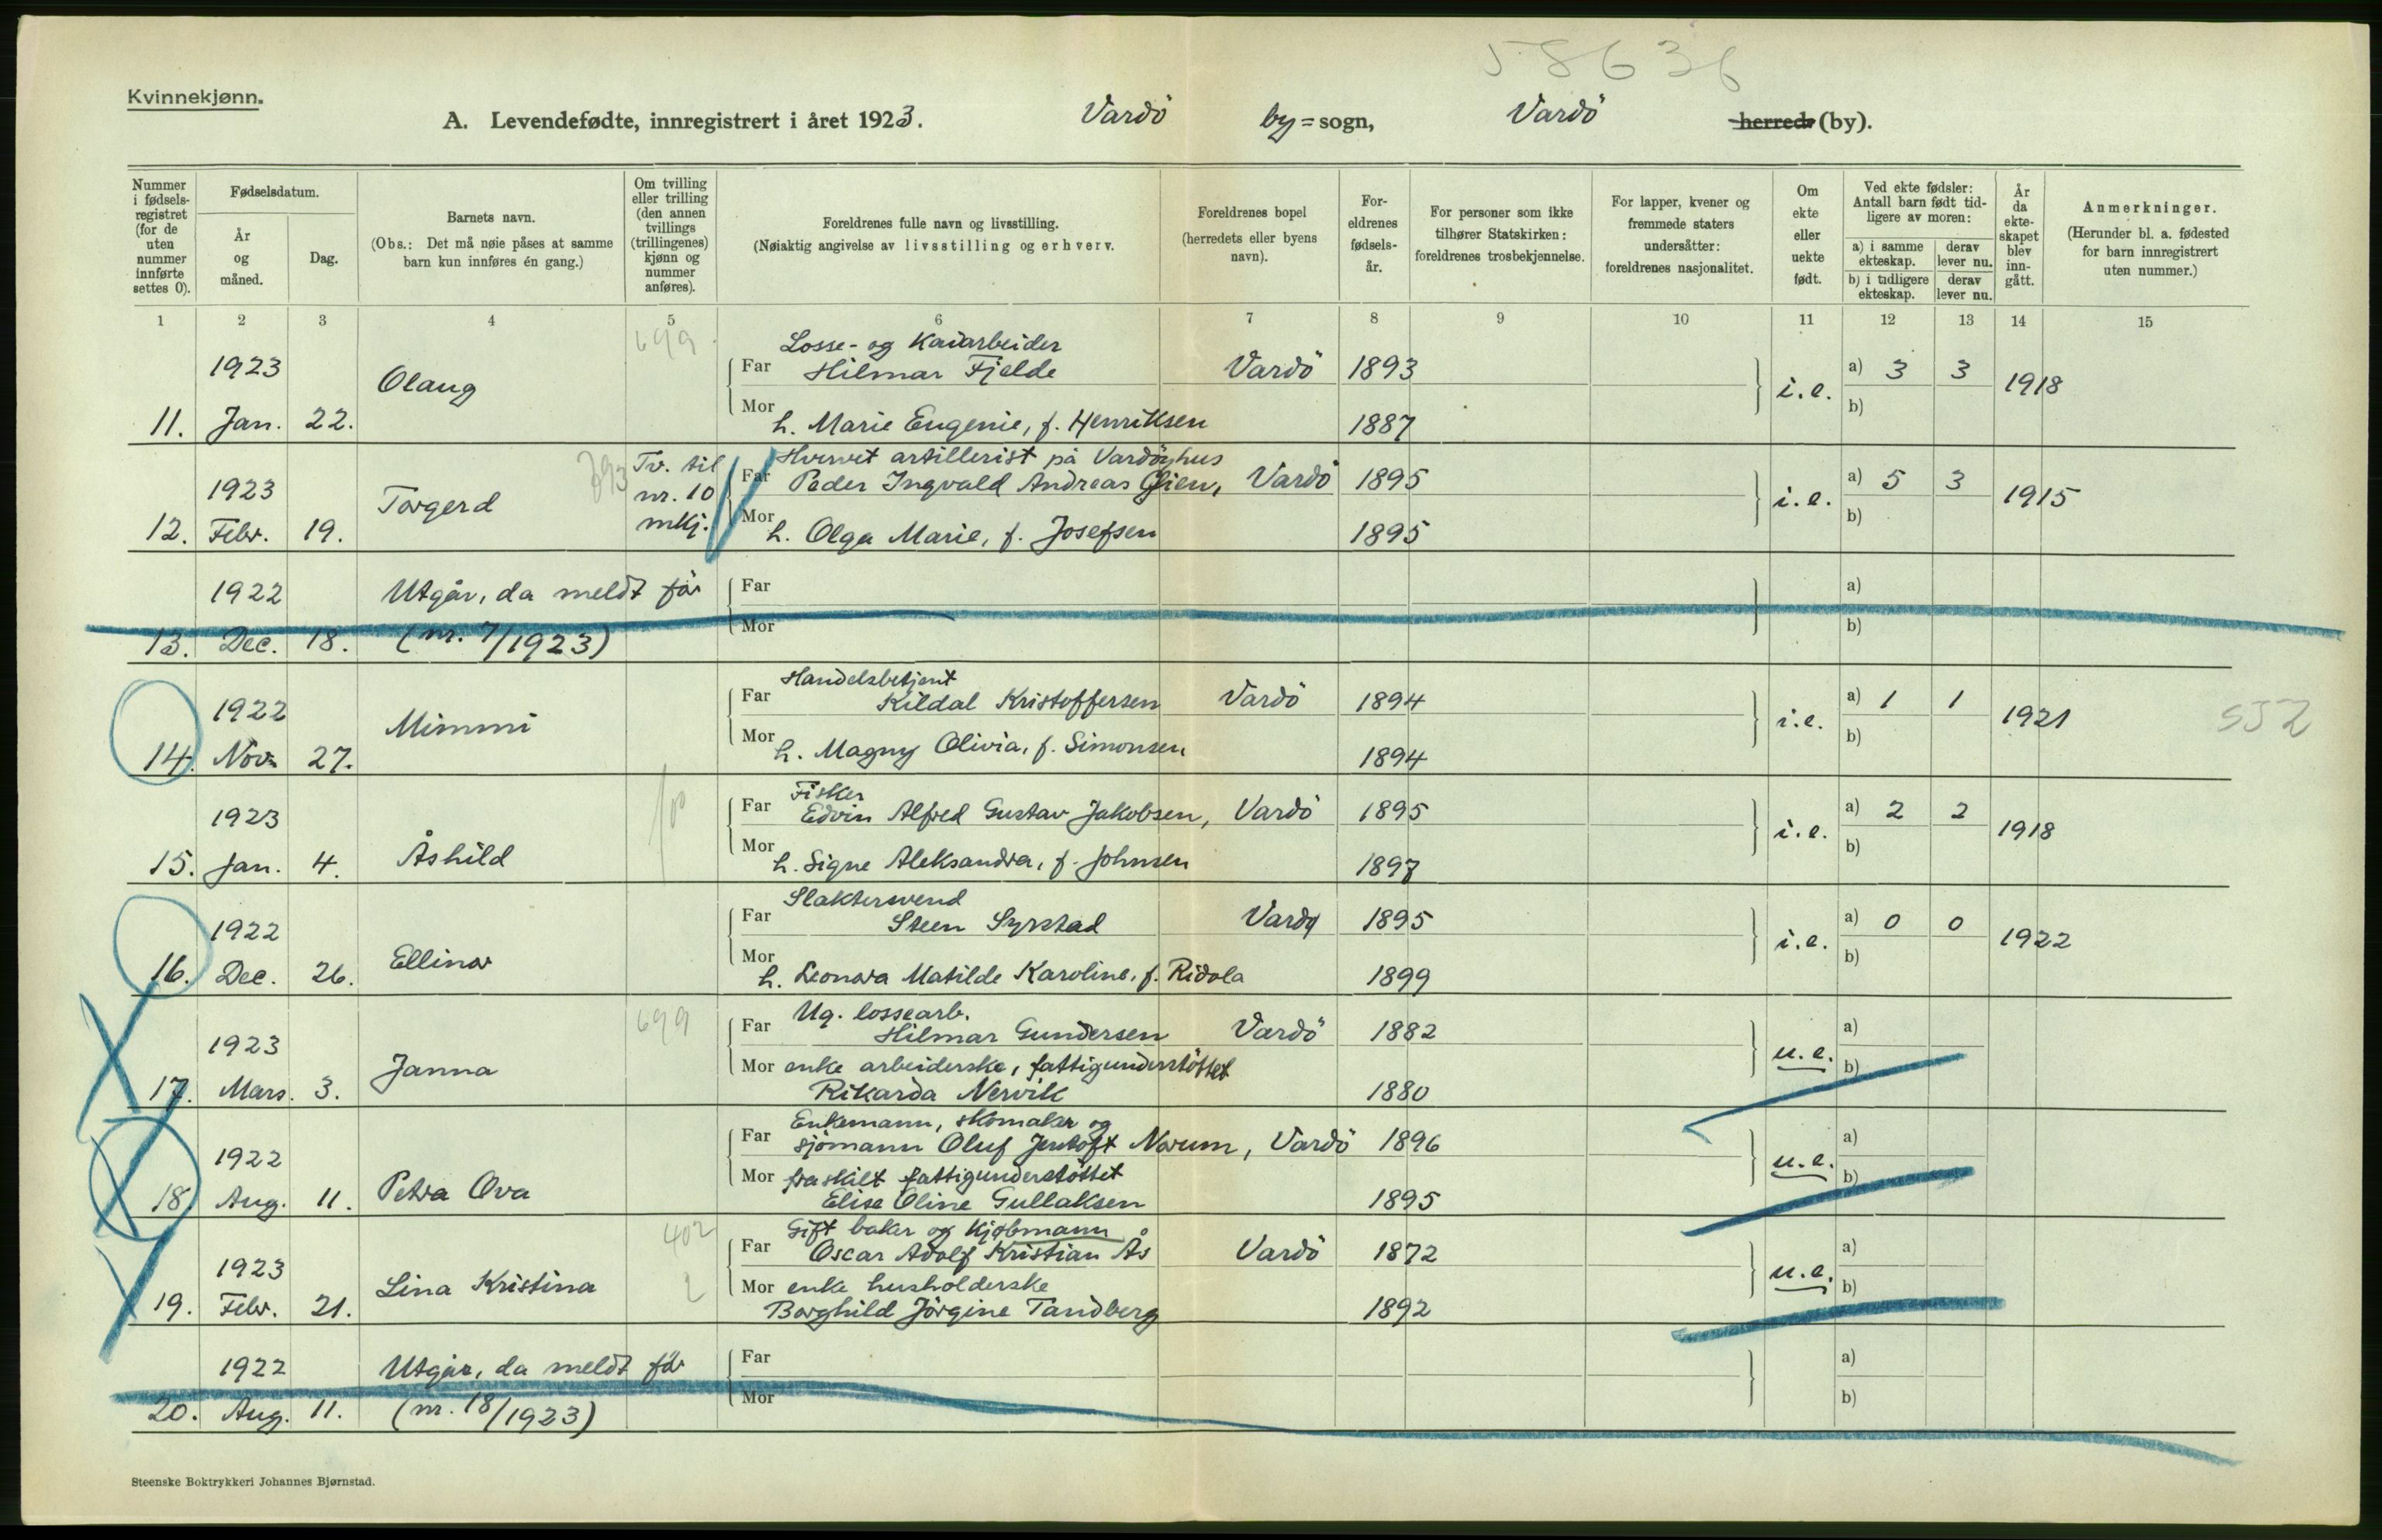 58636
Kvinnekjønn.
A. Levendefødte, innregistrert i året 1923. Vardö by=sogn, Vardö herred (by).
Nummer i fødsels-registret (for de uten nummer innførte settes 0).
Fødselsdatum.
År og måned.
Dag.
Barnets navn.
(Obs.: Det må nøie påses at samme barn kun innføres én gang.)
Om tvilling eller trilling (den annen tvillings (trillingenes) kjønn og nummer anføres).
Foreldrenes fulle navn og livsstilling.
(Nøiaktig angivelse av livsstilling og erhverv.
Foreldrenes bopel (herredets eller byens navn).
For-eldrenes fødsels-år.
For personer som ikke tilhører Statskirken: foreldrenes trosbekjennelse.
For lapper, kvener og fremmede staters undersåtter: foreldrenes nasjonalitet.
Om ekte eller uekte født.
Ved ekte fødsler: Antall barn født tid-ligere av moren:
a) i samme ekteskap. derav lever nu.
b) i tidligere ekteskap. derav lever nu.
År da ekte-skapet blev inn-gått.
Anmerkninger.
(Herunder bl. a. fødested for barn innregistrert uten nummer.)
1 2 3 4 5 6 7 8 9 10 11 12 13 14 15
699
Losse- og Kaiarbeider
1923 Olaug Far Hilmar Fjelde Vardö 1893 i.e. a) 3 3 1918
11. Jan. 22. Mor h. Marie Eugenie, f. Henriksen 1887 b)
393 Tv. til Hvervet artillerist på Vardöyhus
1923 Torgerd nr. 10 Far Peder Ingvald Andreas Glien, Vardö 1895 i.e. a) 5 3 1915
12. Febr. 19. mkj. Mor h. Olga Marie, f. Josefsen 1895 b)
1922 Utgår, da meldt før Far a)
13. Dec. 18. (nr. 7/1923) Mor b)
Handelsbetjent
1922 Mimmi Far Kildal Kristoffersen Vardö 1894 i.e. a) 1 1 1921 552
14. Nov. 27. Mor h. Magny Olivia, f. Simonsen 1894 b)
100 Fisker
1923 Åshild Far Edvin Alfred Gustav Jakobsen, Vardö 1895 i.e. a) 2 2 1918
15. Jan. 4. Mor h. Signe Aleksandra, f. Johnsen 1897 b)
Slaktersvend
1922 Ellinor Far Steen Syrstad Vardø 1895 i.e. a) 0 0 1922
16. Dec. 26. Mor h. Leonora Matilde Karoline, f. Ridola 1899 b)
699 Ug. lossearb.
1923 Janna Far Hilmar Gundersen Vardö 1882 u.e. a)
Mor enke arbeiderske, fattigunderstöttet b)
17. Mars. 3. Rikarda Nervik 1880
Enkemann, skomaker og
1922 Far sjömann Oluf Jentoft Norum, Vardö 1896 u.e. a)
Mor fraskilt fattigunderstöttet b)
18. Aug. 11. Petra Ova Elise Oline Gullaksen 1895
402 Gift baker og kjøbmann
1923 Lina Kristina Far Oscar Adolf Kristian Ås Vardö 1872 u.e. a)
2 Mor enke husholderske b)
19. Febr. 21. Borghild Jörgine Tandberg 1892
1922 Utgår, da meldt för Far a)
20. Aug. 11. (nr. 18/1923) Mor b)
Steenske Boktrykkeri Johannes Bjørnstad.